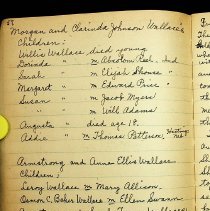 58
Morgan and Clarinda Johnson Wallace's
Children:
Willis Wallace died young
Dorinda " m Absolom Beal. Ind
Sarah " m Elijah Shouse "
Margaret " m Edward Price "
Susan " m Jacob Myers
" m Will Adams
Augusta " died age 18.
Addie " m Thomas Patterson,
Neb.
Armstrong and Anna Ellis Wallace.
Children:
Leroy Wallace m Mary Allison.
C. Baker Wallace m Ellen Swanson